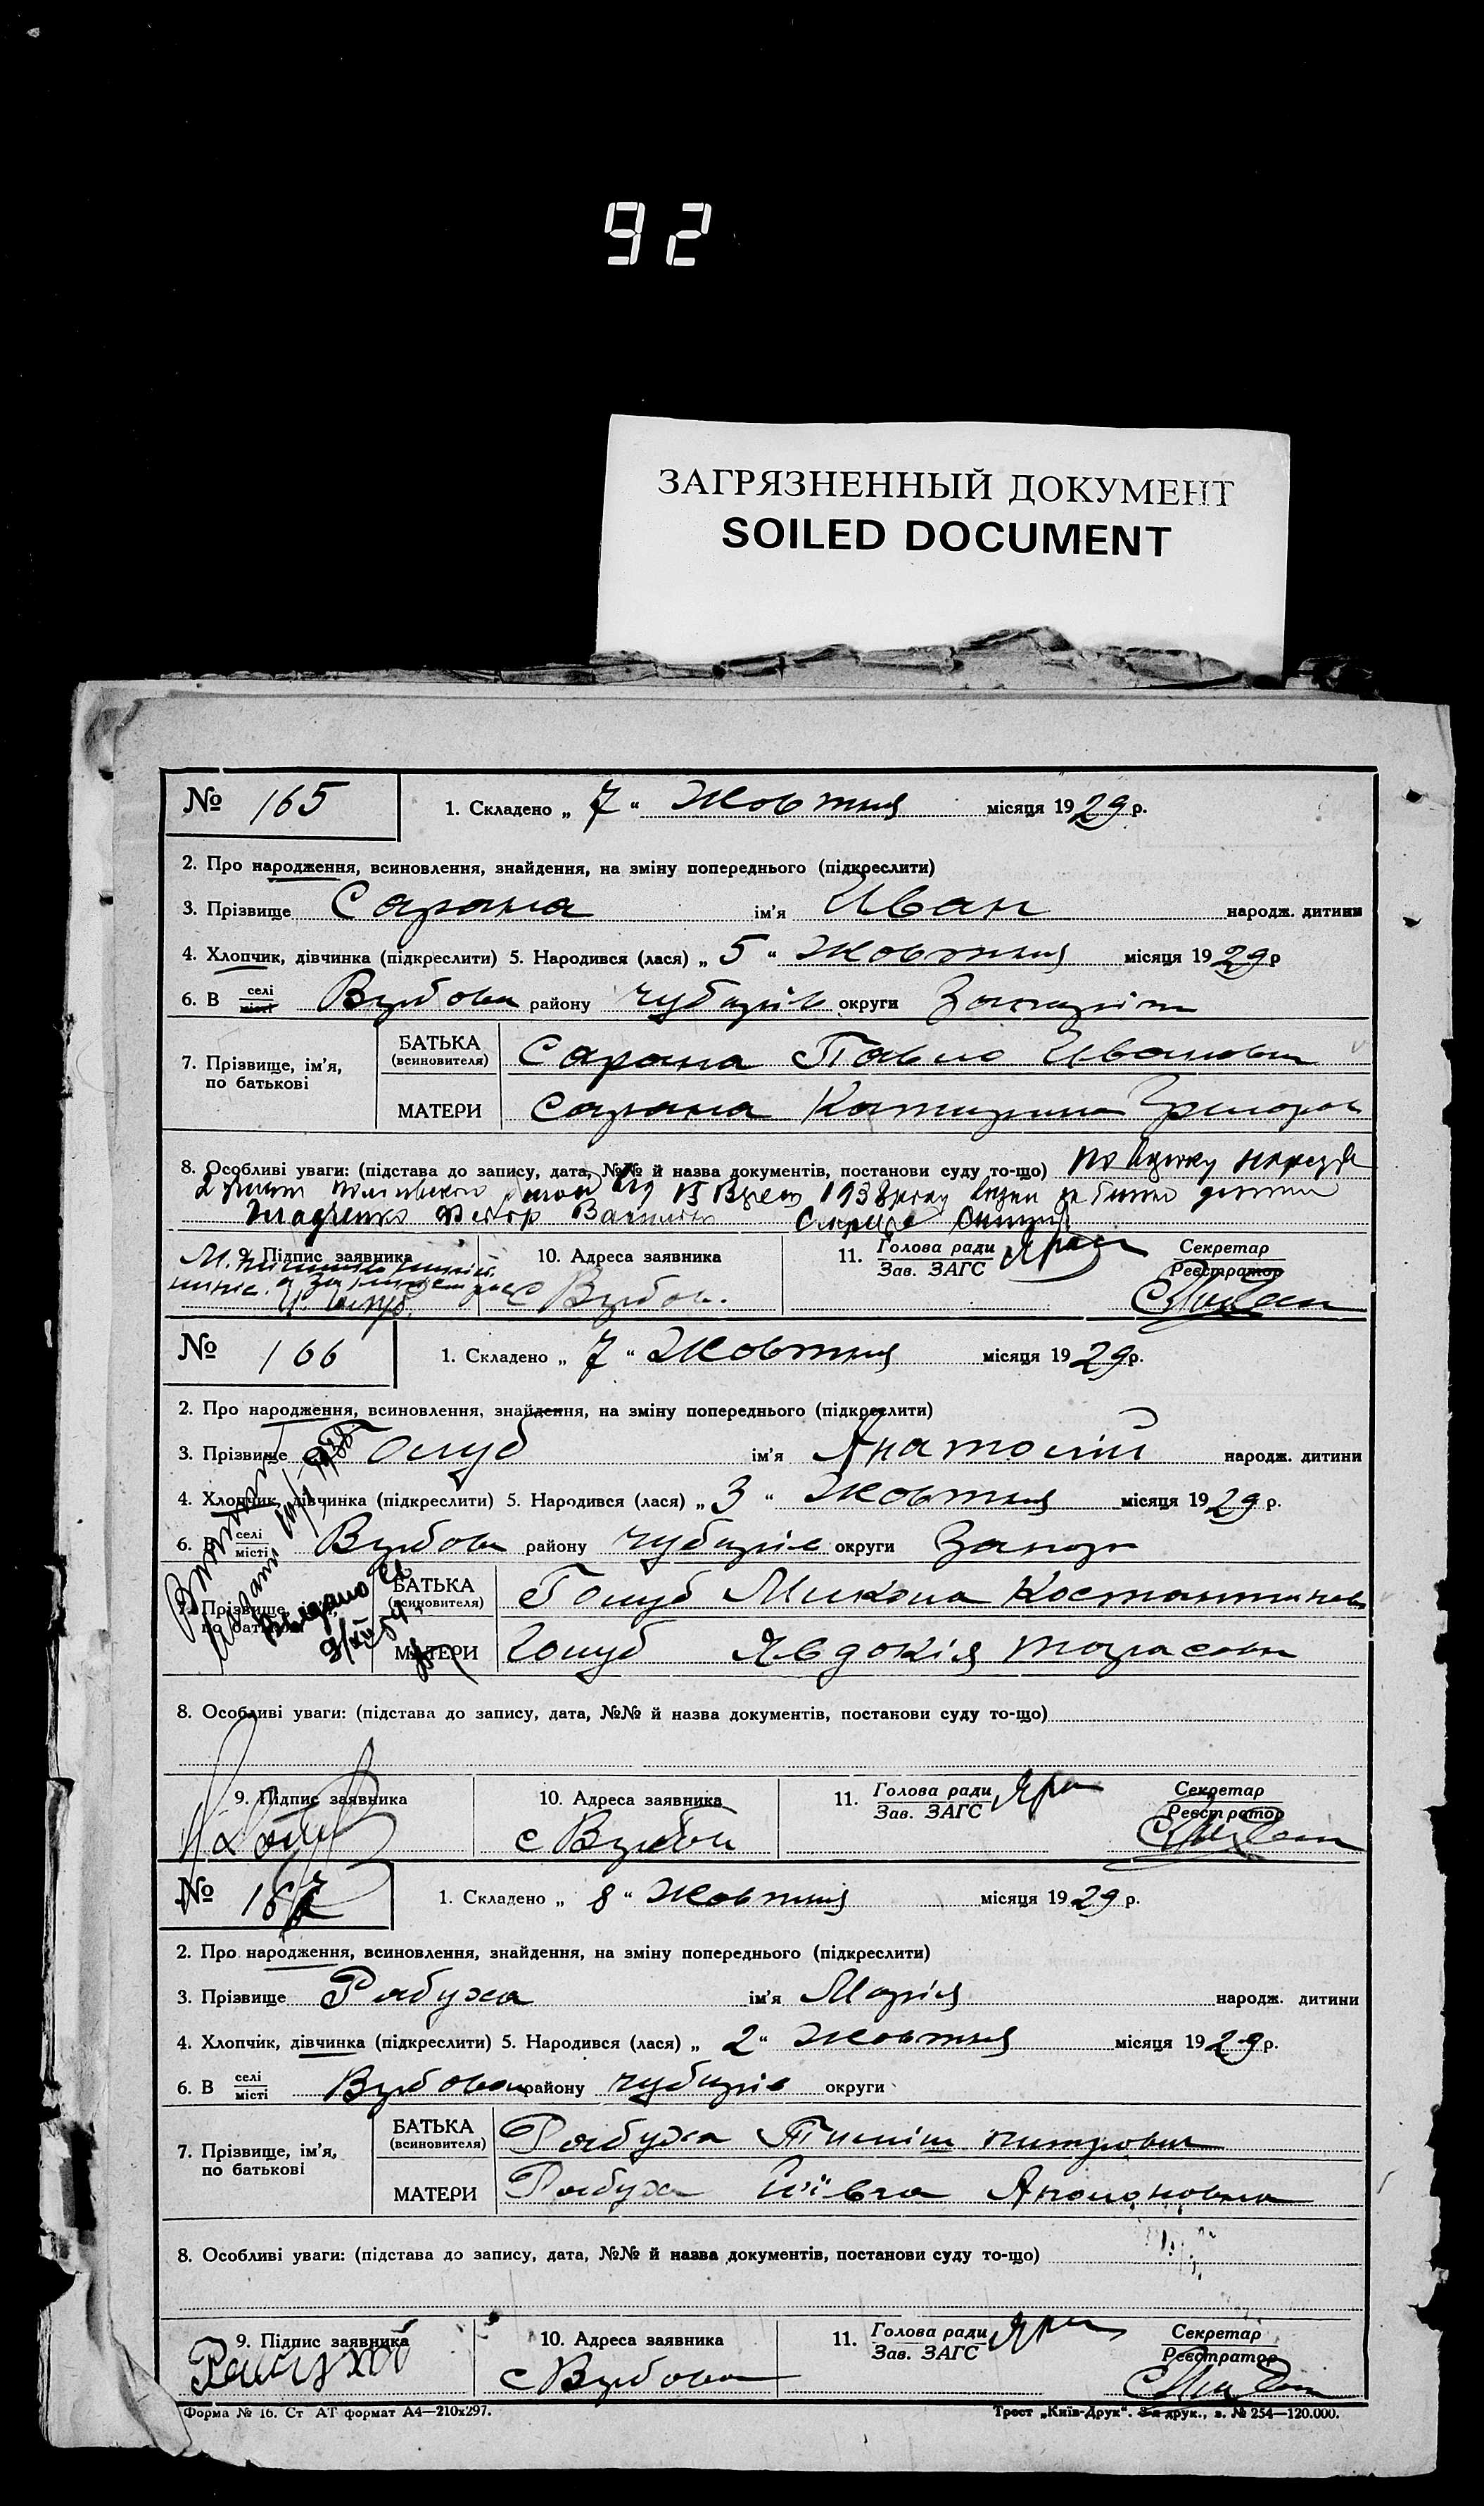 92
ЗАГРЯЗНЕННЫЙ ДОКУМЕНТ
SOILED DOCUMENT
№ 165
1. Складено „ 7 “ Жовтня місяця 1929 р.
2. Про народження, всиновлення, знайдення, на зміну попереднього (підкреслити)
3. Прізвище Сарана ім'я Иван народж. дитини
4. Хлопчик, дівчинка (підкреслити) 5. Народився (лася) „ 5 “ Жовтня місяця 1929 р
6. В селі місті Вербова району Чубарів округи
7. Прізвище, ім'я, по батькові
БАТЬКА (всиновителя) Сарана Павло Иванович
МАТЕРИ Сарана Катерина Григоров
8. Особливі уваги: (підстава до запису, дата, №№ й назва документів, постанови суду то-що)
9. Підпис заявника
10. Адреса заявника
с Вербов.
11. Голова ради Зав. ЗАГС
Секретар Реєстратор
№ 166
1. Складено „ 7 “ Жовтня місяця 1929 р.
2. Про народження, всиновлення, знайдення, на зміну попереднього (підкреслити)
3. Прізвище Голуб ім'я Анатолій народж. дитини
4. Хлопчик, дівчинка (підкреслити) 5. Народився (лася) „ 3 “ Жовтня місяця 1929 р.
6. В селі місті Вербова району Чубарів округи Запор
7. Прізвище, ім'я, по батькові
БАТЬКА (всиновителя) Голуб Микола Костантинов
МАТЕРИ Голуб Явдокія Тарасовн
8. Особливі уваги: (підстава до запису, дата, №№ й назва документів, постанови суду то-що)
9. Підпис заявника
10. Адреса заявника
с Вербов
11. Голова ради Зав. ЗАГС
Секретар Реєстратор
№ 167
1. Складено „ 8 “ Жовтня місяця 1929 р.
2. Про народження, всиновлення, знайдення, на зміну попереднього (підкреслити)
3. Прізвище Рябуха ім'я Марія народж. дитини
4. Хлопчик, дівчинка (підкреслити) 5. Народився (лася) „ 2 “ Жовтня місяця 1929 р.
6. В селі місті Вербова району Чубарів округи
7. Прізвище, ім'я, по батькові
БАТЬКА (всиновителя) Рябуха
МАТЕРИ Рябуха
8. Особливі уваги: (підстава до запису, дата, №№ й назва документів, постанови суду то-що)
9. Підпис заявника
10. Адреса заявника
с Вербова
11. Голова ради Зав. ЗАГС
Секретар Реєстратор
Форма № 16. Ст АТ формат А4—210x297.
Трест „Київ-Друк“. 3-я друк., з. № 254—120.000.